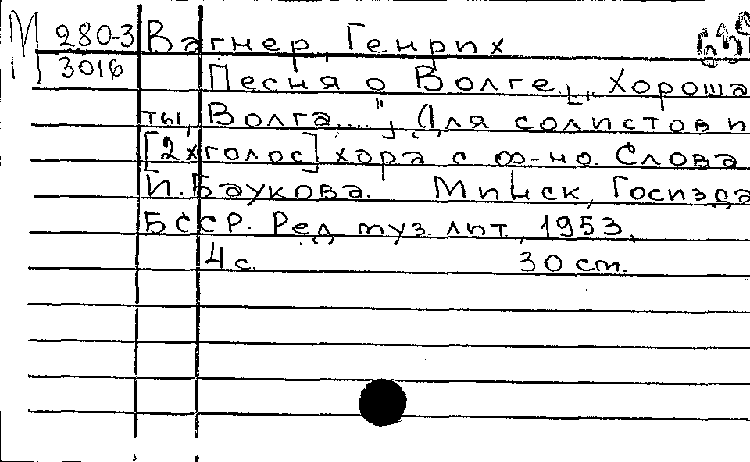 М 280-3 Вагнер, Генрих
3016 Песня о Волге. „Хороша
ты, Волга...", (Для солистов и
[2хголос] хора с ф-но. Слова
И. Баукова. Минск, Госизда
БССР. Ред. муз. лит., 1953.
4 с. 30 см.